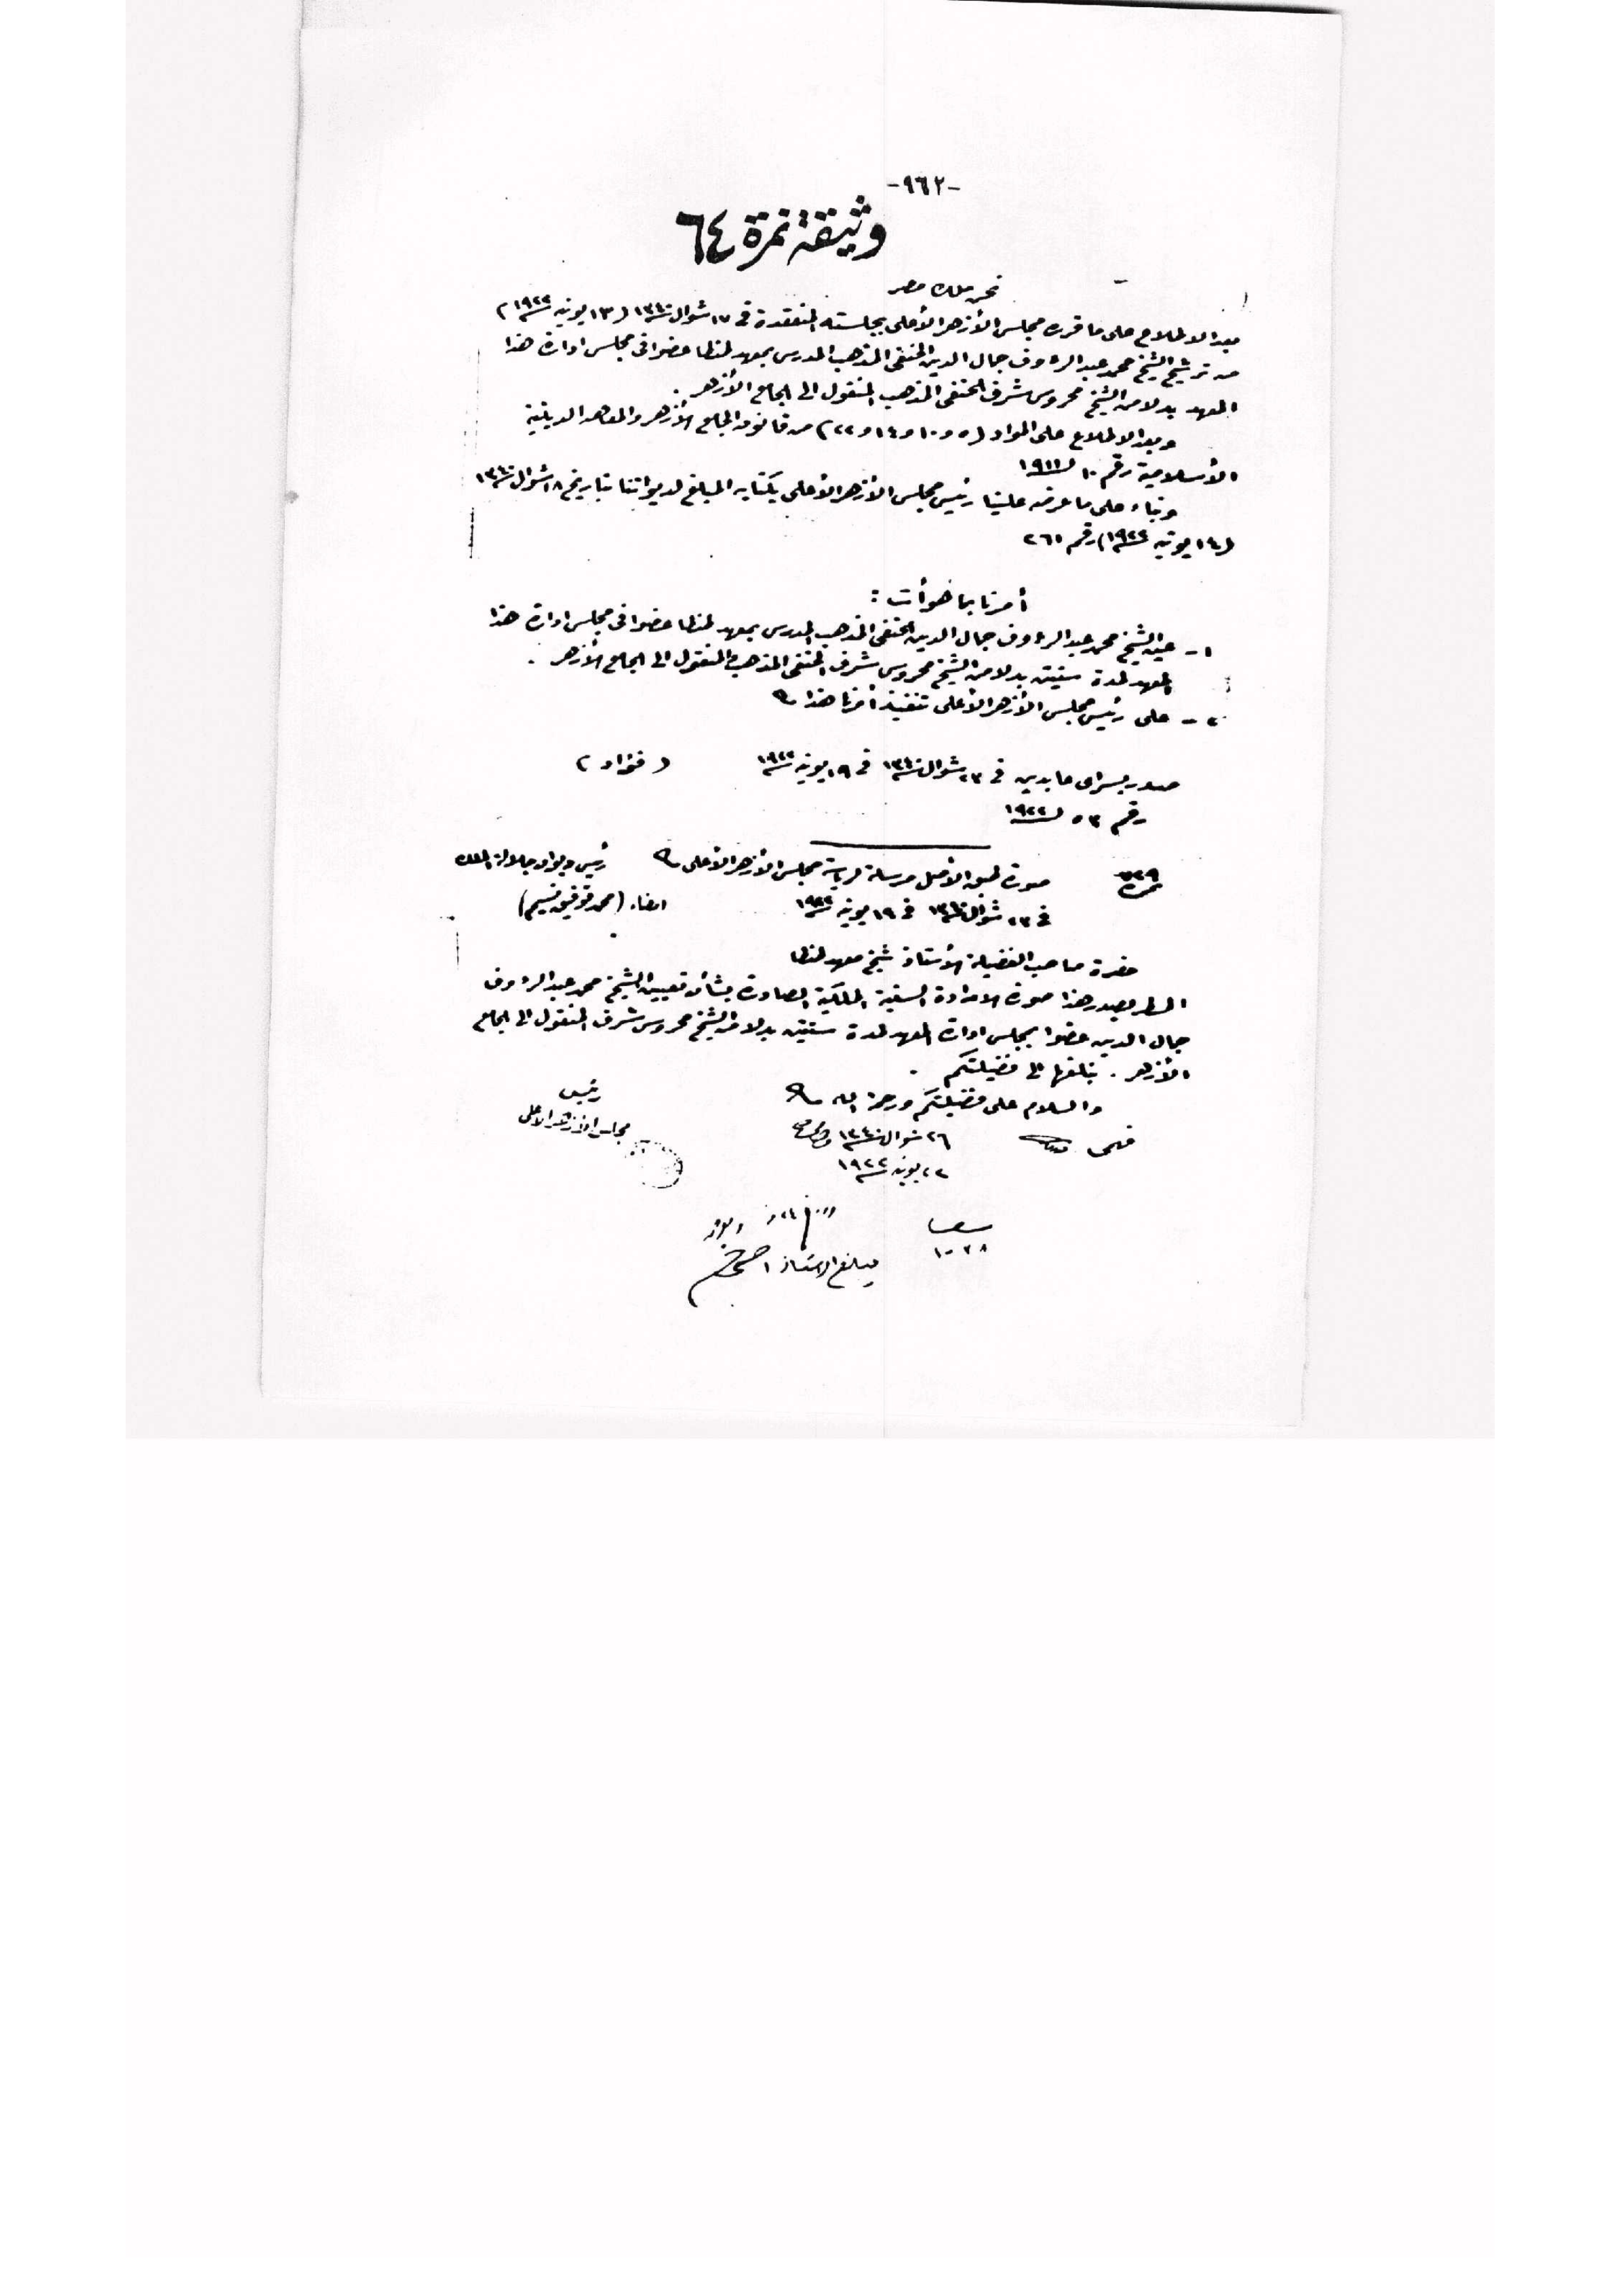 -٩٦٢-
وثيقة نمرة ٦٤
نحن ملك مصر
بعد الاطلاع على ما قرره مجلس الأزهر الأعلى بجلسته المنعقدة في ١٧ شوال سنة ١٣٤٠ (١٣ يونيه سنة ١٩٢٢)
من ترشيح الشيخ محمد عبد الرءوف جمال الدين الحنفى المذهب المدرس بمعهد طنطا عضوا فى مجلس ادارة هذا
المعهد بدلا من الشيخ محروس شرف الحنفى المذهب المنقول الى الجامع الأزهر .
وبعد الاطلاع على المواد (٥ و ١٠ و ١٤ و ٢٢) من قانون الجامع الأزهر والمعاهد الدينية
الأسلامية رقم ١٠ لسنة ١٩١١
وبناء على ما عرضه علينا رئيس مجلس الأزهر الأعلى بكتابه المبلغ لديواننا بتاريخ ١٨ شوال سنة ١٣٤٠
(١٤ يونيه سنة ١٩٢٢) رقم ٢٦١
أمرنا بما هو أت :
١ - عين الشيخ محمد عبد الرءوف جمال الدين الحنفى المذهب المدرس بمعهد طنطا عضوا فى مجلس ادارة هذا
المعهد لمدة سنتين بدلا من الشيخ محروس شرف الحنفى المذهب المنقول الى الجامع الأزهر .
٢ - على رئيس مجلس الأزهر الأعلى تنفيذ أمرنا هذا
صدر بسراى عابدين فى ٢٣ شوال سنة ١٣٤٠ فى ١٩ يونيه سنة ١٩٢٢ (فؤاد)
رقم ٥٣ لسنة ١٩٢٢
نمرة صورة طبق الأصل مرسلة لرياسة مجلس الأزهر الأعلى رئيس ديوان جلالة الملك
فى ٢٣ شوال سنة ١٣٤٠ فى ١٩ يونيه سنة ١٩٢٢ امضاء (محمد توفيق نسيم)
حضرة صاحب الفضيلة الأستاذ شيخ معهد طنطا
المسطر بصدر هذا صورة الارادة السنية الملكية الصادرة بشأن تعيين الشيخ محمد عبد الرءوف
جمال الدين عضوا بمجلس ادارة المعهد لمدة سنتين بدلا من الشيخ محروس شرف المنقول الى الجامع
الأزهر . نبلغها الى فضيلتكم .
والسلام على فضيلتكم ورحمة الله
رئيس
مجلس الأزهر الأعلى
فهمى ٢٦ شوال سنة ١٣٤٠
٢٢ يونيه سنة ١٩٢٢
١٠٢٨
يبلغ الاستاذ